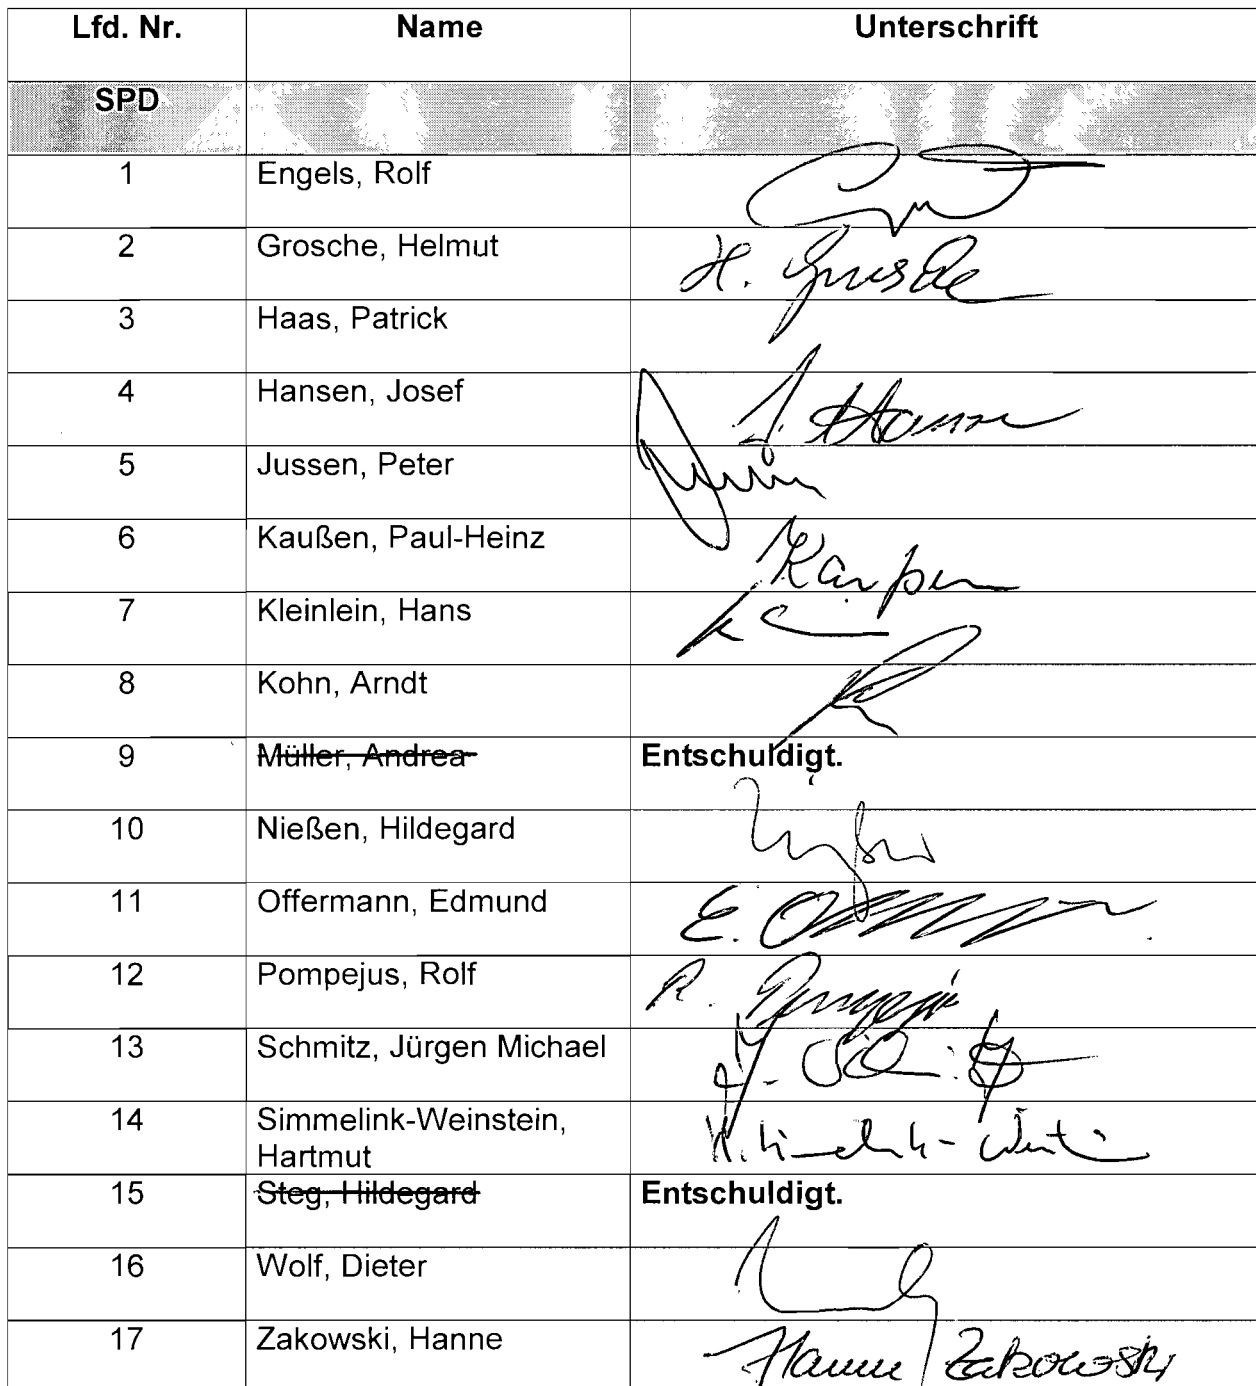 Lfd. Nr. Name Unterschrift
SPD
1 Engels, Rolf
2 Grosche, Helmut H. Grosche
3 Haas, Patrick
4 Hansen, Josef J. Hansen
5 Jussen, Peter
6 Kaußen, Paul-Heinz Kaußen
7 Kleinlein, Hans
8 Kohn, Arndt
9 Müller, Andrea Entschuldigt.
10 Nießen, Hildegard
11 Offermann, Edmund E.
12 Pompejus, Rolf R. Pompejus
13 Schmitz, Jürgen Michael
14 Simmelink-Weinstein,
Hartmut
15 Steg, Hildegard Entschuldigt.
16 Wolf, Dieter
17 Zakowski, Hanne Hanne Zakowski